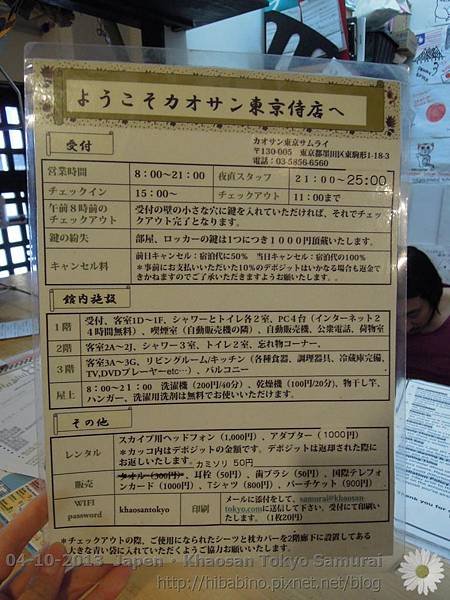 ようこそカオサン東京侍店へ
受付
カオサン東京サムライ
〒130-005 東京都墨田区東駒形1-18-3
電話：03-5856-6560
営業時間 8：00～21：00 夜直スタッフ 21：00～25:00
チェックイン 15：00～ チェックアウト 11:00まで
午前８時前の
チェックアウト
受付の壁の小さな穴に鍵を入れていただければ、それでチェッ
クアウト完了となります。
鍵の紛失 部屋、ロッカーの鍵は1つにつき１０００円頂戴いたします。
キャンセル料
前日キャンセル：宿泊代に50% 当日キャンセル：宿泊代の100%
＊事前にお支払いいただいた10%のデポジットはいかなる場合も返金で
きかねますのでご了承いただきますようお願いいたします。
館内施設
1階 受付、客室1D～1F、シャワーとトイレ各２室、PC４台（インターネット２
４時間無料）、喫煙室（自動販売機の隣）、自動販売機、公衆電話、荷物室
２階 客室2A～2J、シャワー３室、トイレ２室、忘れ物コーナー、
３階 客室3A～3G、リビングルーム/キッチン（各種食器、調理器具、冷蔵庫完備、
TV,DVDプレーヤーetc…）、バルコニー
屋上 8：００～２１：00 洗濯機（200円/40分）、乾燥機（100円/20分）, 物干し竿、
ハンガー、洗濯用洗剤は無料でお使いいただけます。
その他
レンタル
スカイプ用ヘッドフォン（1,000円）、アダプター（1000円）
＊カッコ内はデポジットの金額です。デポジットは返却された際に
お返しいたします。カミソリ 50円
販売
タオル（300円）、耳栓（50円）、歯ブラシ（50円）、国際テレフォ
ンカード（1000円）、Tシャツ（800円）、バーチケット（900円）
WIFI
password
khaosantokyo
印刷
メールに添付をして、samurai@khaosan
tokyo.comに送信して下さい、受付にて印刷い
たします。（1枚20円）
＊チェックアウトの際、ご使用になられたシーツと枕カバーを2階廊下に設置してある
大きな青い袋に入れていただくようご協力お願いいたします。
04-10-2013 Japen・Khaosan Tokyo Samurai
http://hibabino.pixnet.net/blog
Thank you for